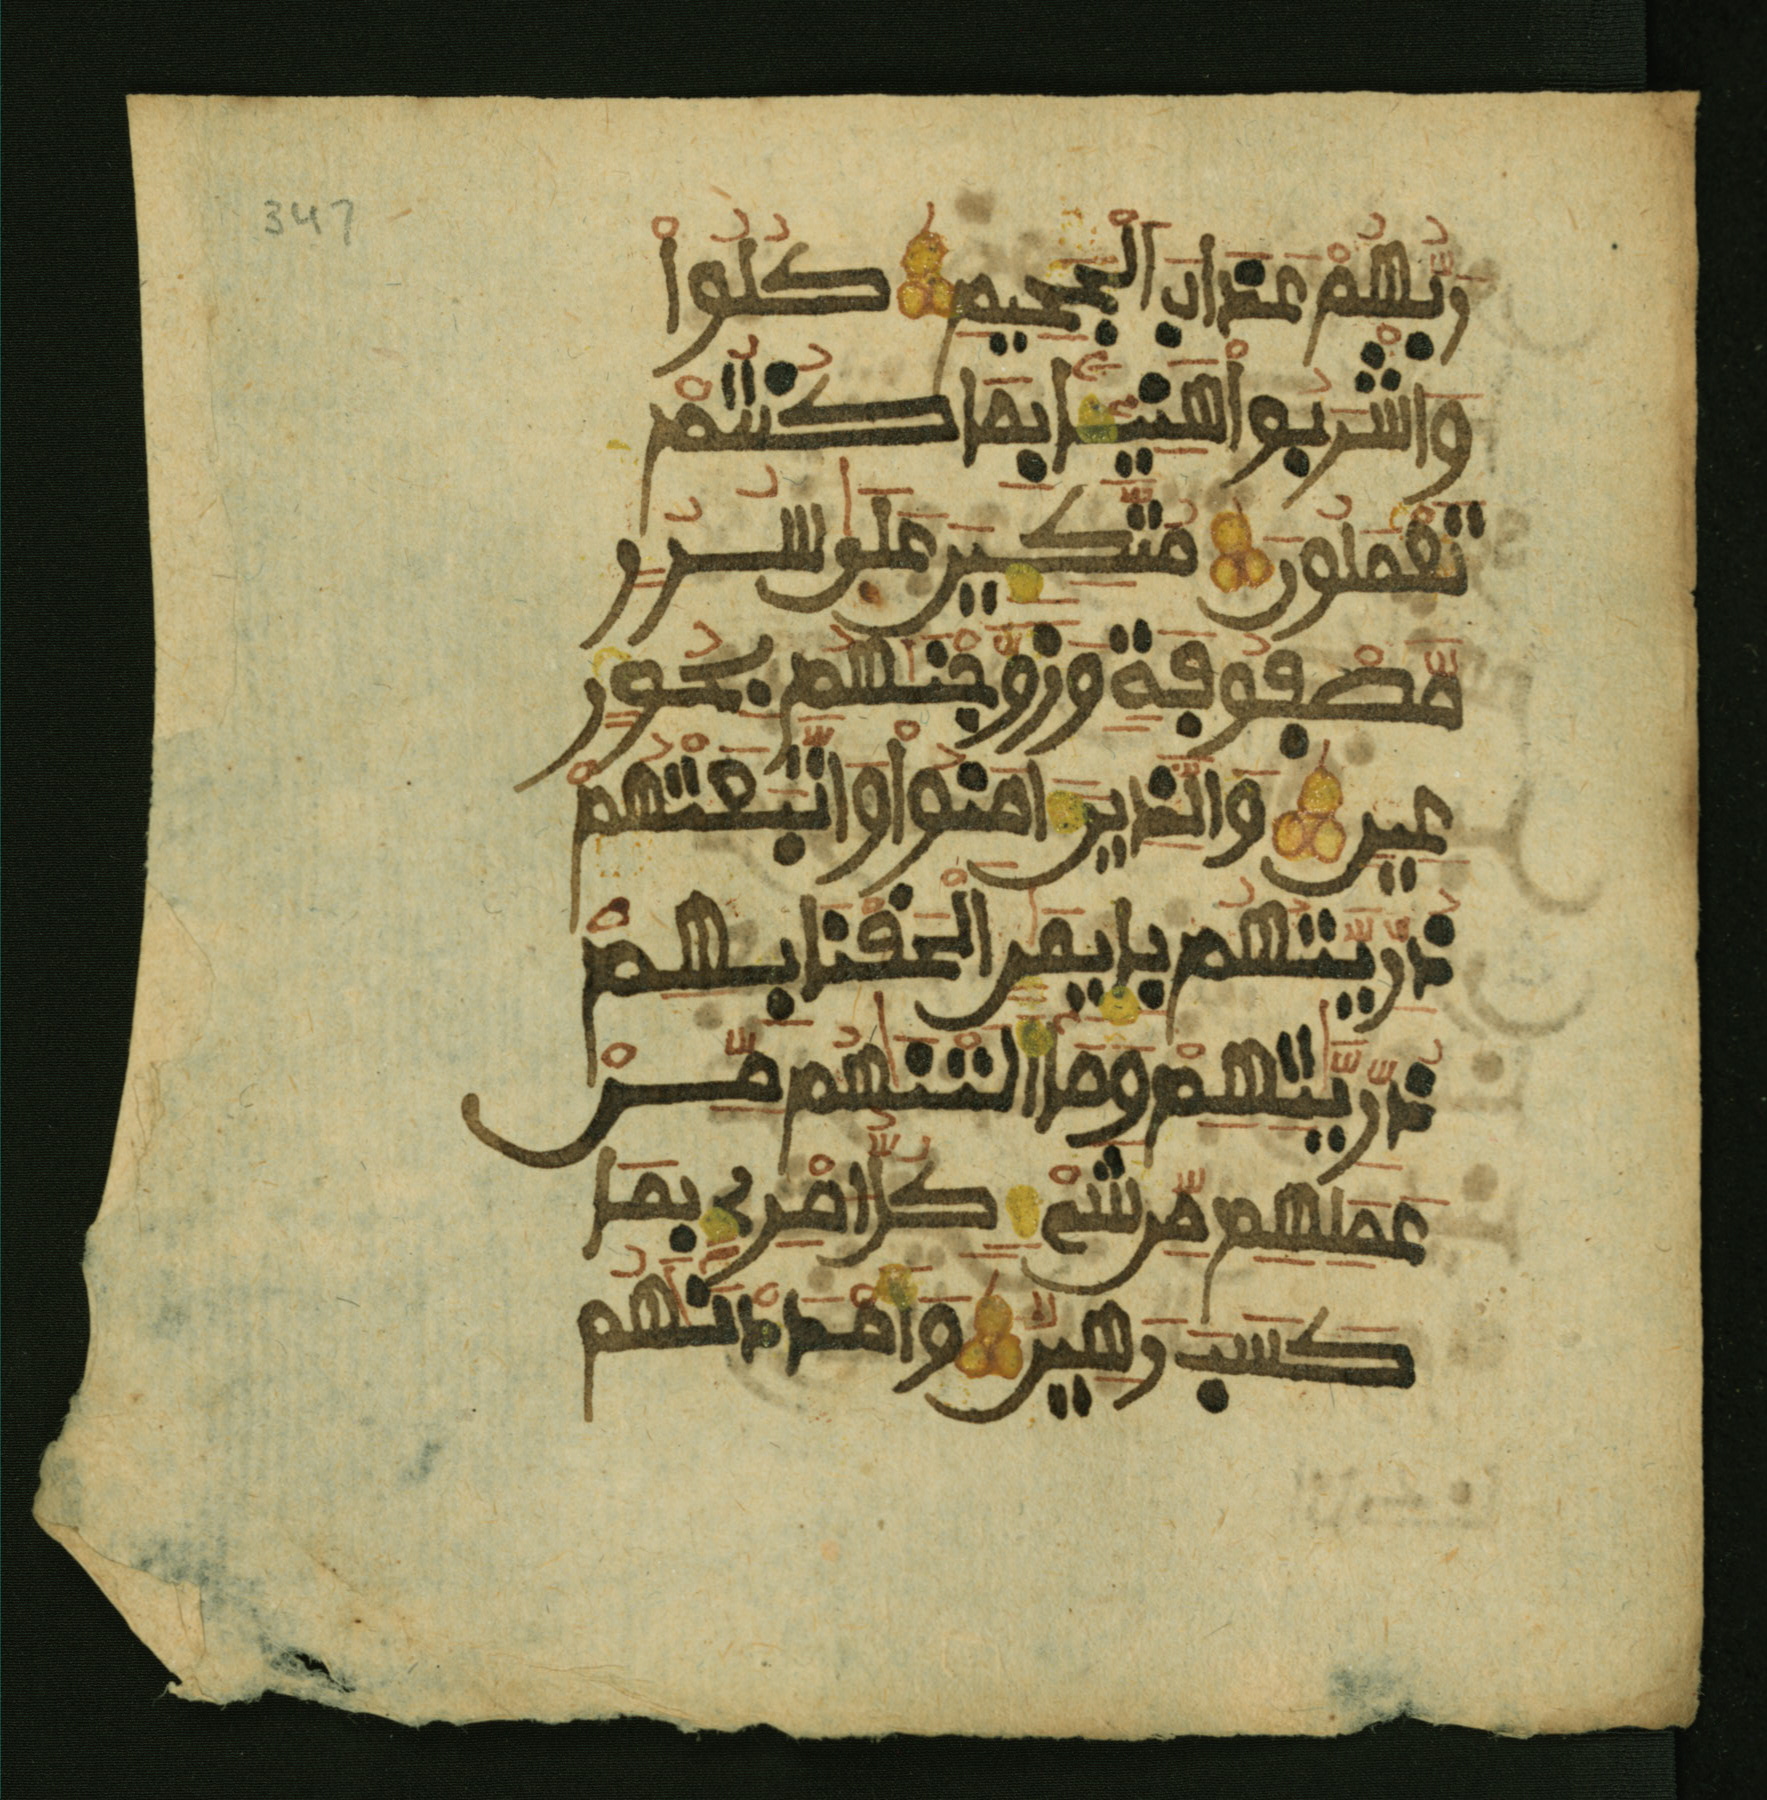 347
رَبُّهُمْ عَذَابَ الْجَحِيمِ كُلُواْ
وَاشْرَبُواْ هَنِيـًٔا بِمَا كُنتُمْ
تَعْمَلُونَ مُتَّكِـِٔينَ عَلَىٰ سُرُرٍ
مَّصْفُوفَةٍ وَزَوَّجْنَٰهُم بِحُورٍ
عِينٍ وَالَّذِينَ ءَامَنُواْ وَاتَّبَعَتْهُمْ
ذُرِّيَّتُهُم بِإِيمَٰنٍ اَلْحَقْنَا بِهِمْ
ذُرِّيَّٰتِهِمْ وَمَا أَلَتْنَٰهُم مِّنْ
عَمَلِهِم مِّن شَےْءٍ كُلُّ اُمْرِےٕ بِمَا
كَسَبَ رَهِينٌ وَأَمْدَدْنَٰهُم